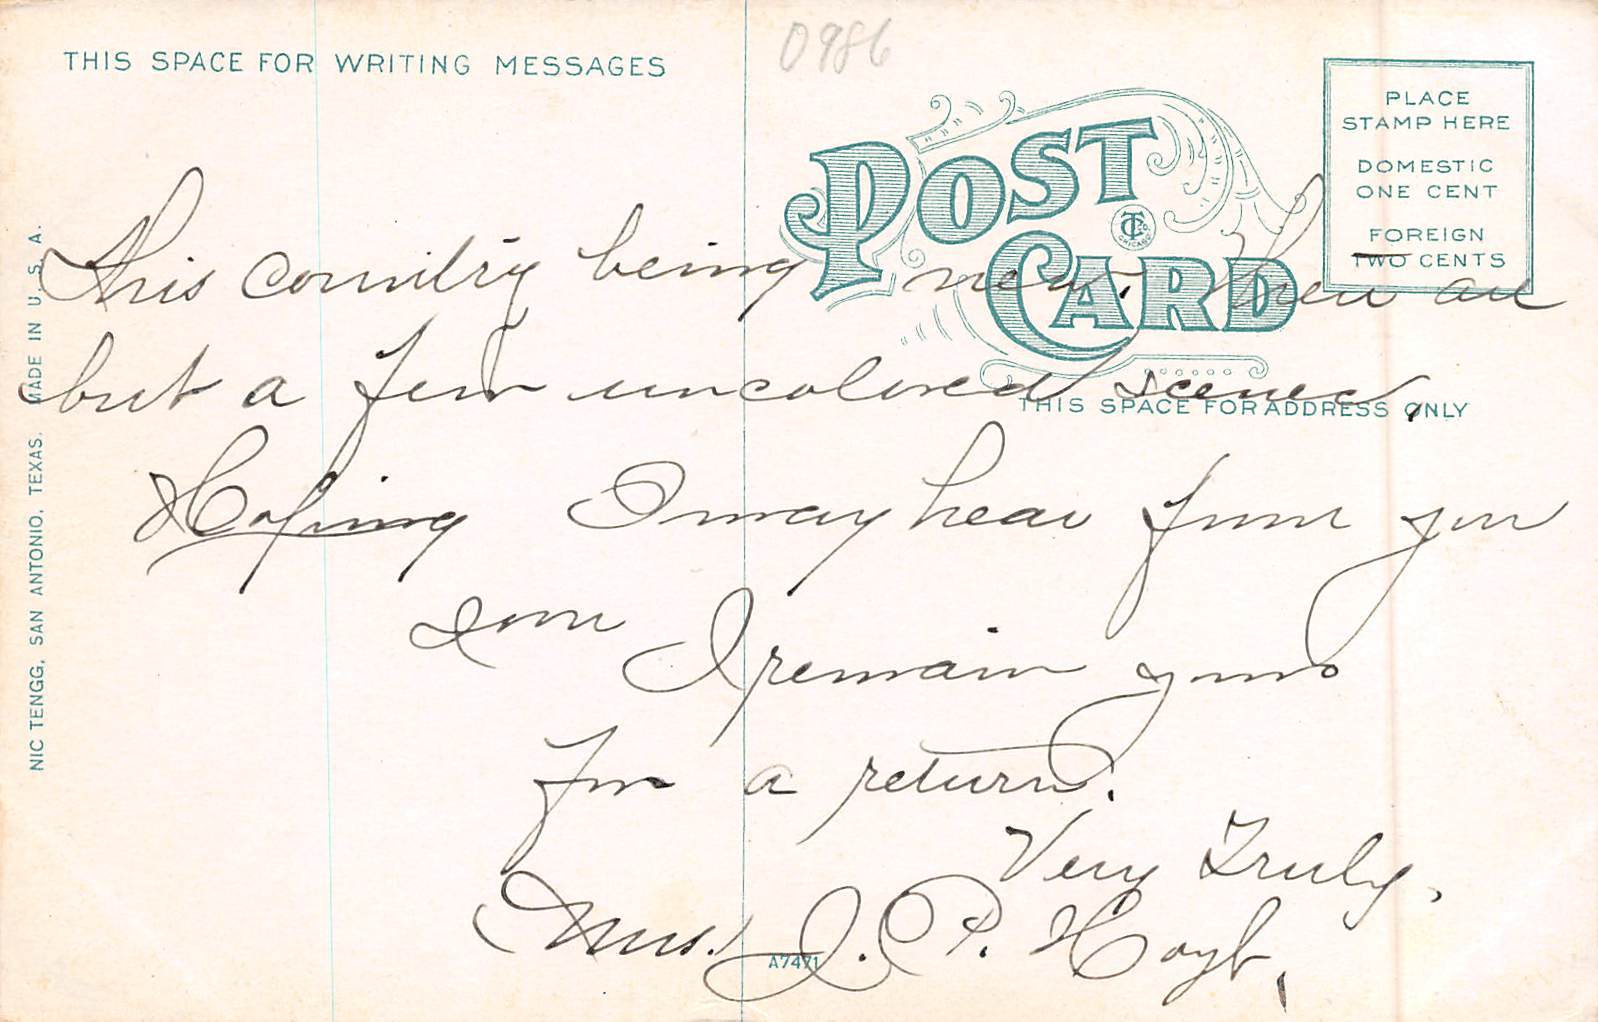 THIS SPACE FOR WRITING MESSAGES
0986
POST CARD
TC CO. CHICAGO
PLACE
STAMP HERE
DOMESTIC
ONE CENT
FOREIGN
TWO CENTS
THIS SPACE FOR ADDRESS ONLY
NIC TENGG, SAN ANTONIO, TEXAS. MADE IN U. S. A.
This country being new. there are
but a few uncolored scenes,
Hoping I may hear from you
soon I remain yours
for a return.
Very Truly,
Mrs. J. P. Hoyt,
A7471